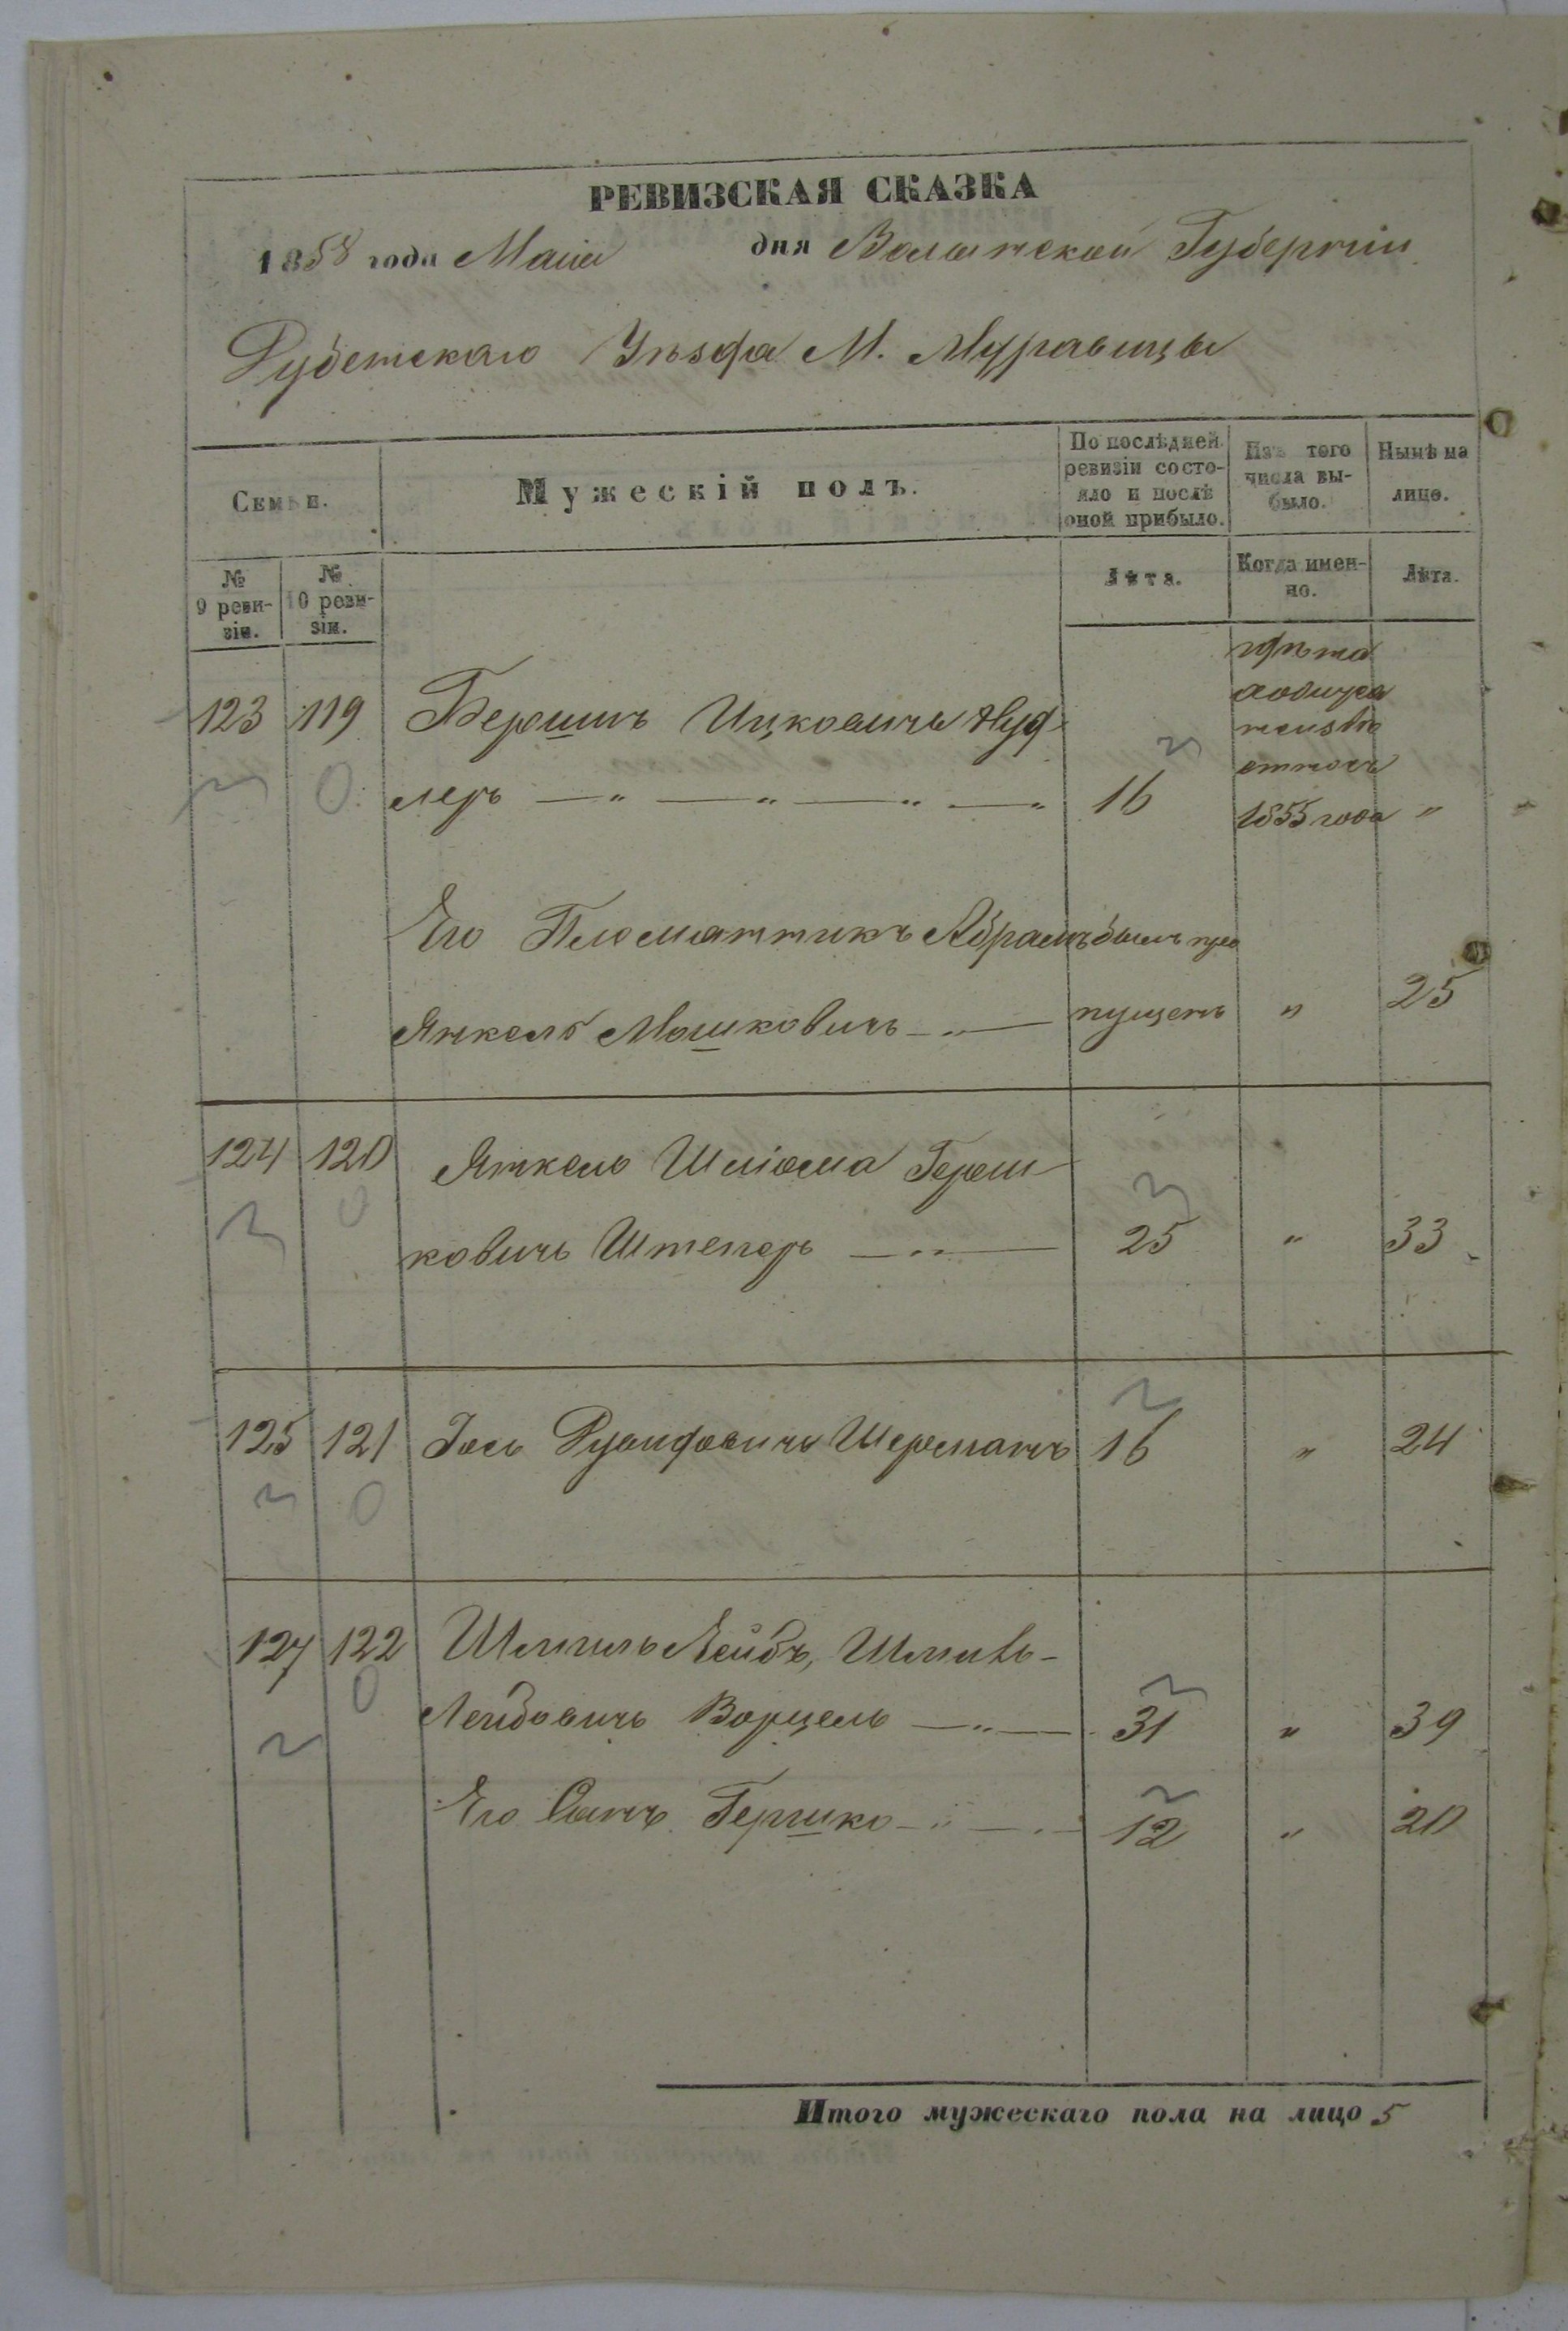 РЕВИЗСКАЯ СКАЗКА
1858 года Маія дня Волынской Губерніи
Дубенскаго Уѣзда М. Муравицы
Семьи.
Мужескій полъ.
По послѣдней ревизіи состо-
яло и послѣ
оной прибыло.
Изъ того
числа вы-
было.
Нынѣ на
лице.
№
9 реви-
зіи.
№
10 реви-
зіи.
Лѣта.
Когда имен-
но.
Лѣта.
123 119 Берошъ Ицковичъ Нуд-
леръ 16 1855 года "
Его Племянникъ Абрамъ былъ про
Янкель Мошковичъ пущенъ " 25
124 120 Янкель Шліома Герш-
ковичъ Штепер 25 " 33
125 121 Іось Рувиновичъ Шерманъ 16 " 24
127 122 Шмиль Лейбъ, Шмиль-
Лейбовичъ Ворцель 31 " 39
Его Сынъ Гершко 12 " 20
Итого мужескаго пола на лицо 5